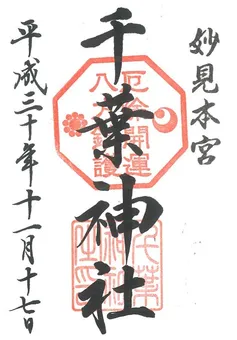 妙見本宮
千葉神社
厄除開運
八方守護
平成三十年十一月十七日